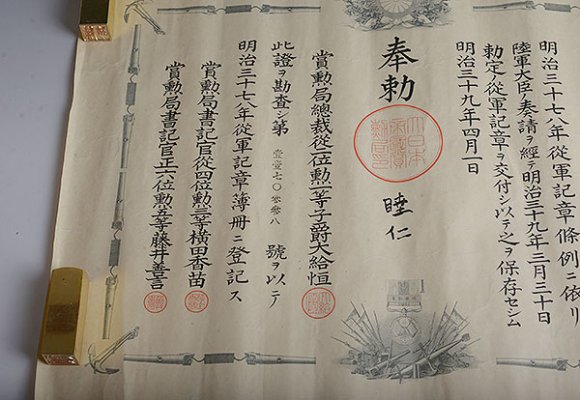 明治三十七八年從軍記章條例ニ依リ
陸軍大臣ノ奏請ヲ經テ明治三十九年三月三十日
勅定ノ從軍記章ヲ交付シ以テ之ヲ保存セシム
明治三十九年四月一日
奉勅
睦仁
賞勲局總裁從二位勲一等子爵大給恒
此證ヲ勘査シ第
號ヲ以テ
明治三十七八年從軍記章簿冊ニ登記ス
賞勲局書記官從四位勲三等横田香苗
賞勲局書記官正六位勲五等藤井善言